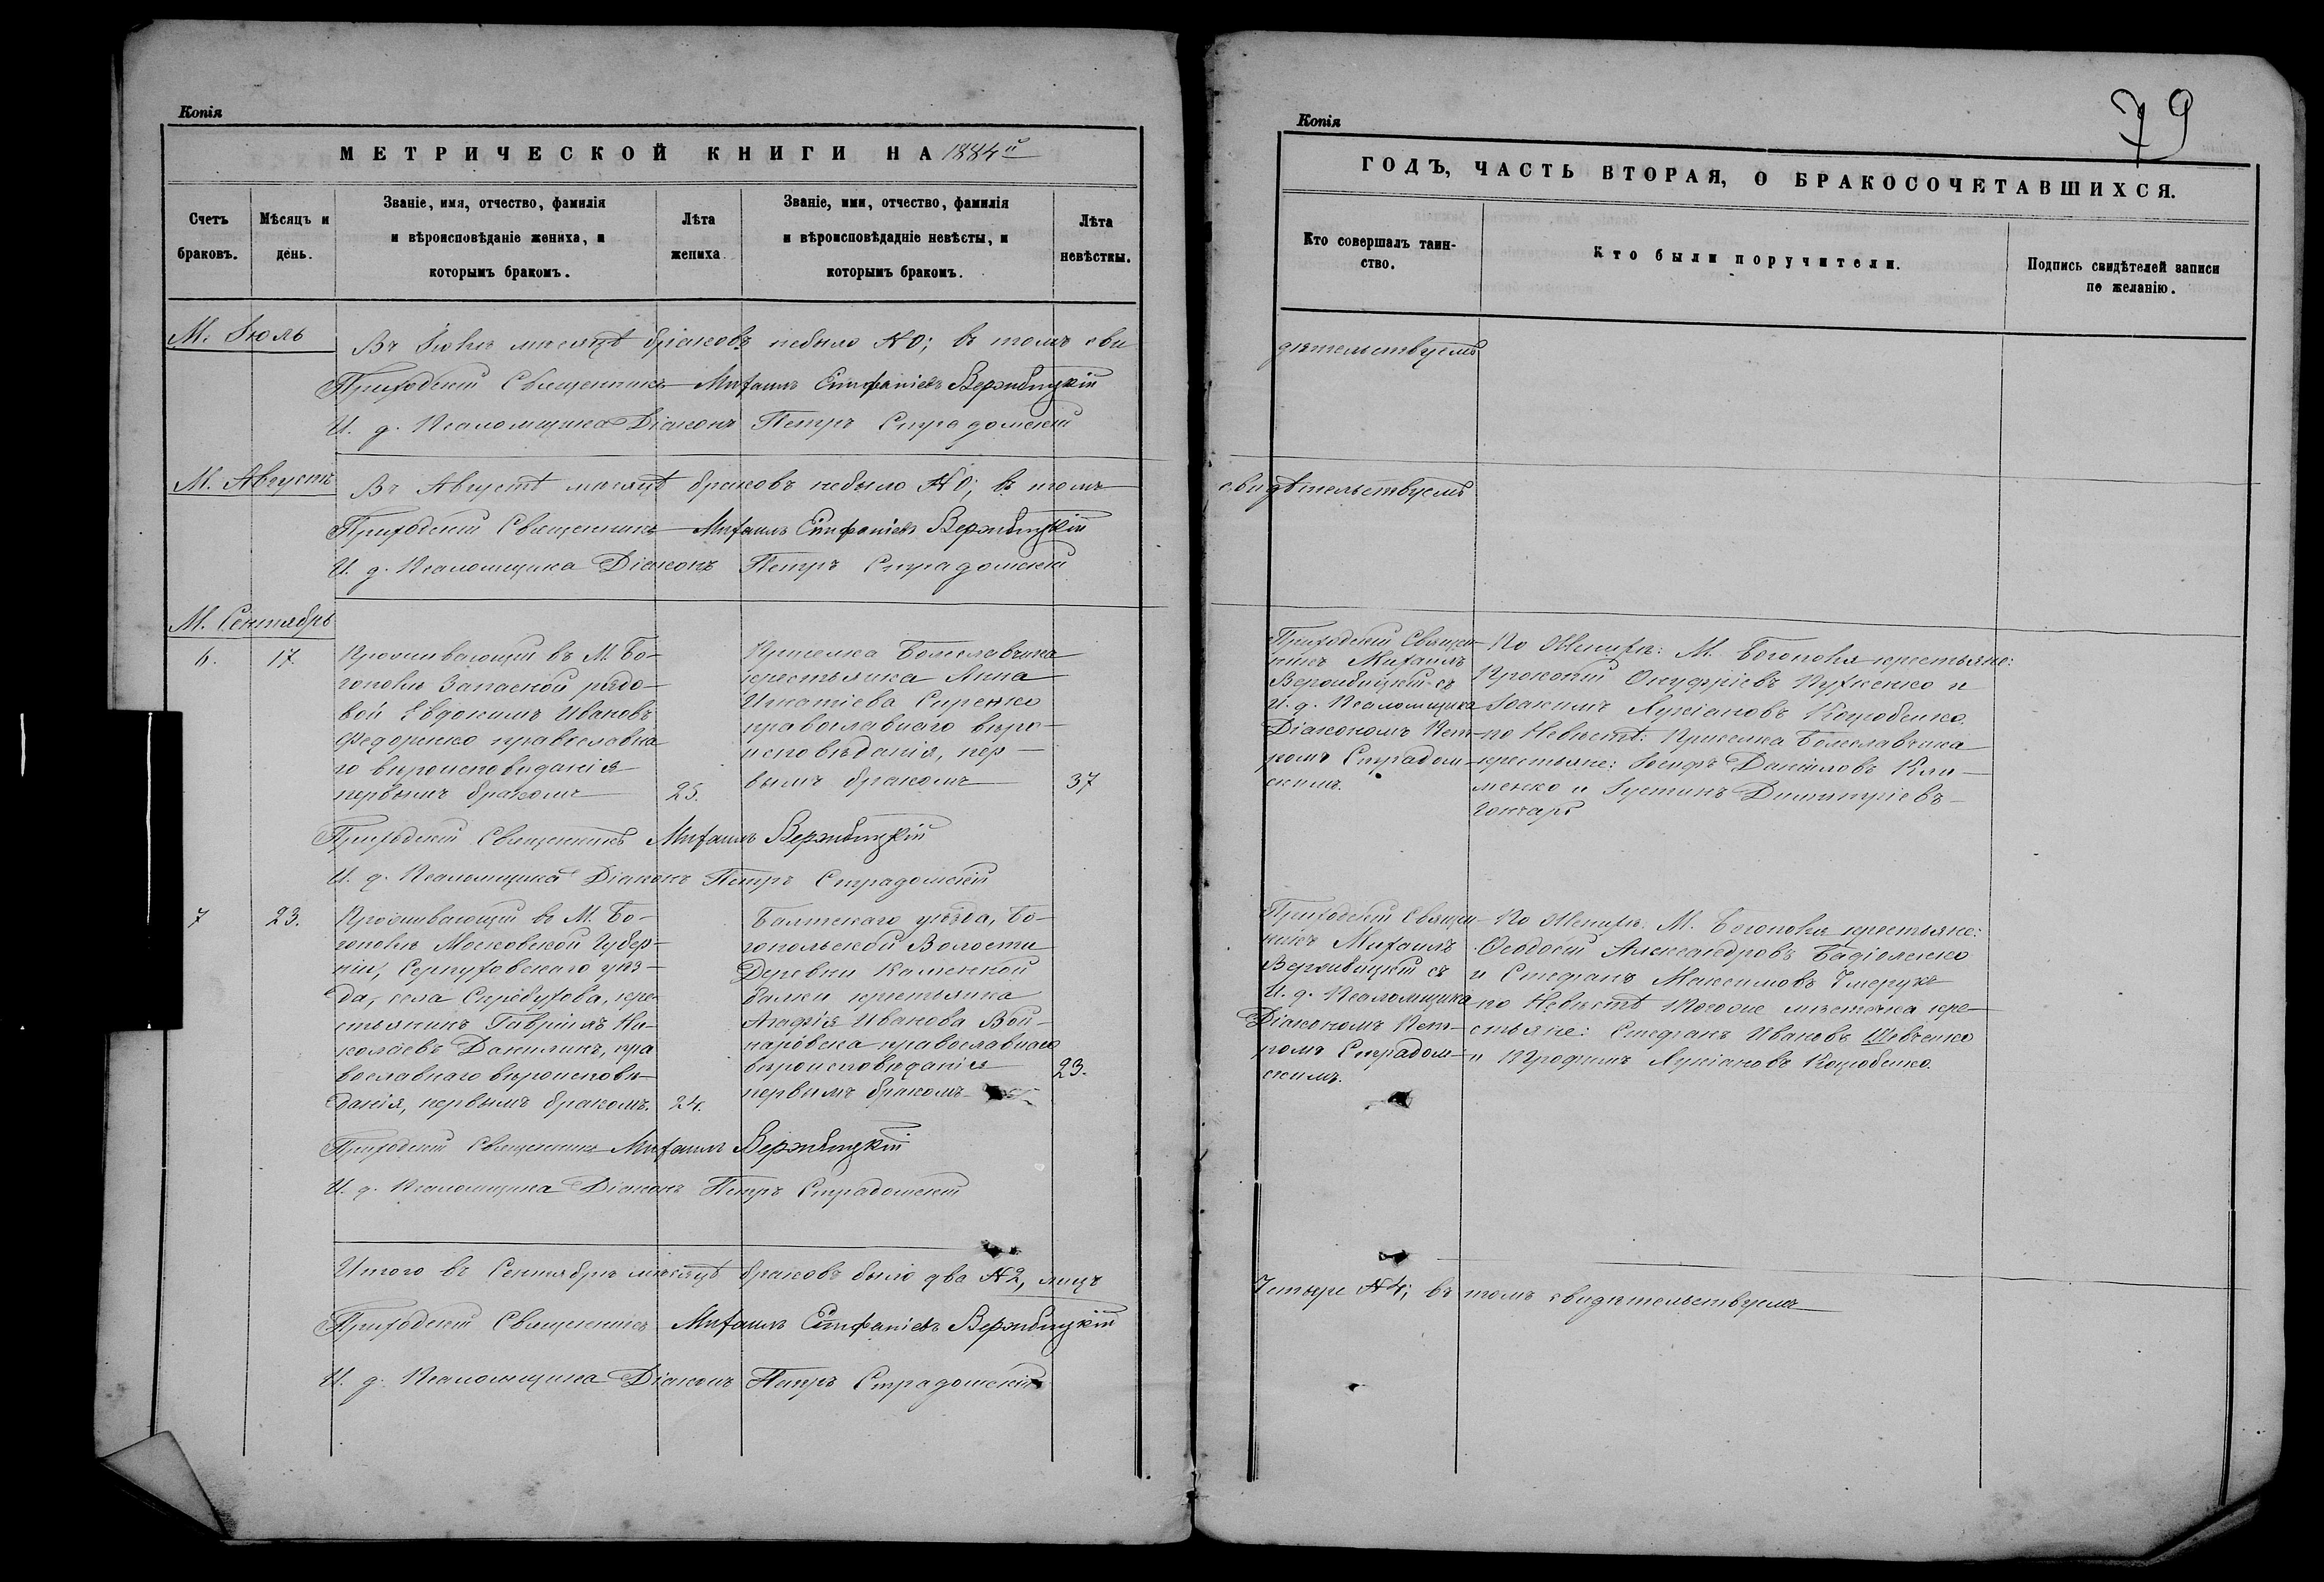 Копія
МЕТРИЧЕСКОЙ КНИГИ НА 1884й
Счетъ браковъ.
Мѣсяцъ и день.
Званіе, имя, отчество, фамилія и вѣроисповѣданіе жениха, и которымъ бракомъ.
Лѣта жениха
Званіе, имя, отчество, фамилія и вѣроисповѣдадніе невѣсты, и которымъ бракомъ.
Лѣта невѣсткы.
М. Іюль
Въ Іюлѣ месяцѣ браковъ небыло №0; въ томъ сви
Приходскій Священникъ Михаилъ Епифаніевъ Вержбицкій
И. д. Псаломщика Діаконъ Петръ Страдомскій
М. Августъ
Въ Августѣ месяцѣ браковъ небыло №0; въ томъ
Приходскій Священникъ Михаилъ Епифаніевъ Вержбицкій
И. д. Псаломщика Діаконъ Петръ Страдомскій
М. Сентябрь
6.
17.
Проживающій въ М. Бо-
гополѣ Запасной рядо-
вой Евдокимъ Ивановъ
Федоренко православна
го вѣроисповѣданія
первымъ бракомъ
25.
Приселка Болеславчика
крестьянка Анна
Игнатіева Сиренко
православнаго вѣро-
исповѣданія, пер-
вымъ бракомъ
37
Приходскій Священникъ Михаилъ Вержбицкій
И. д. Псаломщика Діаконъ Петръ Страдомскій
7
23.
Проживающій въ М. Бо-
гополѣ Московской Губер-
ніи, Серпуховскаго уѣз-
да, села Скребухова, кре-
стьянинъ Гавріилъ Ни-
колаевъ Данилинъ, пра
вославнаго вѣроисповѣ-
данія, первымъ бракомъ.
24.
Балтскаго уѣзда, Бо-
гопольской Волости
Деревни Каменной
балки крестьянка
Агафія Иванова Вой-
наровска православнаго
вѣроисповѣданія
первымъ бракомъ
23.
Приходскій Священникъ Михаилъ Вержбицкій
И. д. Псаломщика Діаконъ Петръ Страдомскій
Итого въ Сентябрѣ месяцѣ браковъ было два №2, лицъ
Приходскій Священникъ Михаилъ Епифаніевъ Вержбицкій
И. д. Псаломщика Діаконъ Петръ Страдомскій
Копія
79
ГОДЪ, ЧАСТЬ ВТОРАЯ, О БРАКОСОЧЕТАВШИХСЯ.
Кто совершалъ таин-
ство.
Кто были поручители.
Подпись свидѣтелей записи
по желанію.
дѣтельствуемъ
свидѣтельствуемъ
Приходскій Священ-
никъ Михаилъ
Вержбицкій съ
И. д. Псаломщика
Діакономъ Пет-
ромъ Страдом-
скимъ.
По Женихѣ: М. Богополя крестьяне:
Прокопій Онуфріевъ Пухненко и
Іоакимъ Лукіановъ Коцюбенко.
по Невѣстѣ: Приселка Болеславчика
крестьяне: Іосифъ Даніиловъ Кли-
менко и Іустинъ Димитріевъ
Гонтарь
Приходскій Священ-
никъ Михаилъ
Вержбицкій съ
И. д. Псаломщика
Діакономъ Пет-
ромъ Страдом-
скимъ.
По Женихѣ: М. Богополя крестьяне:
Ѳеодосій Александровъ
и Стефанъ Максимовъ
по Невѣстѣ местечка кре-
стьяне: Стефанъ Ивановъ Шевченко
и Трофимъ Лукіановъ Коцюбенко.
Четыре №4; въ томъ свидѣтельствуемъ